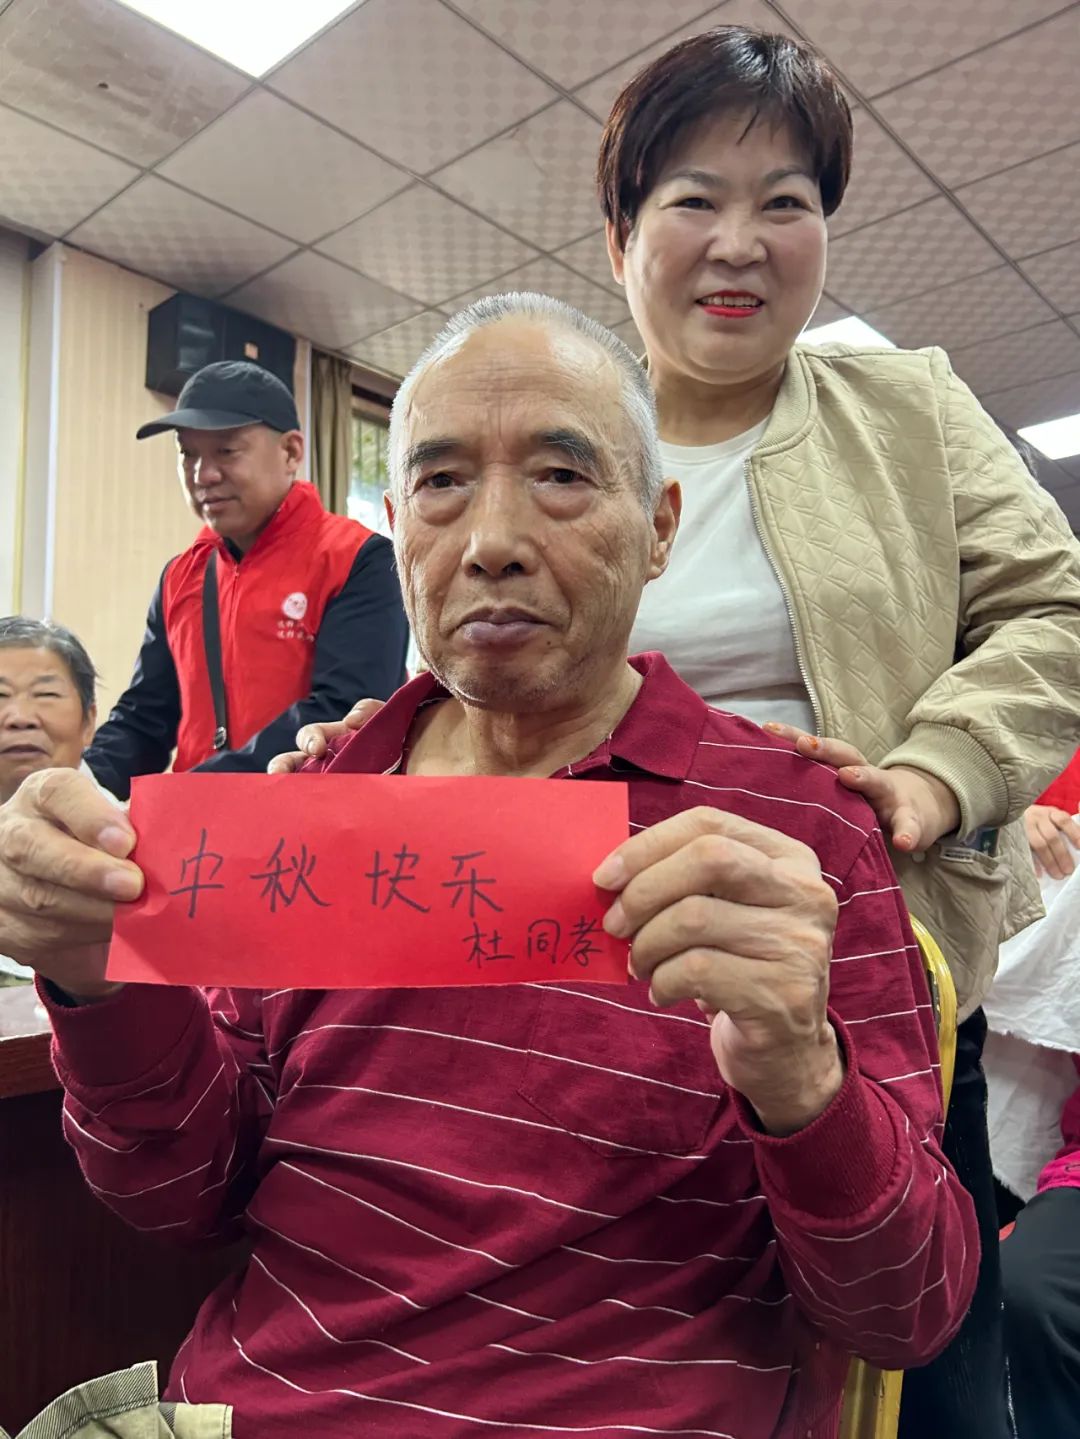 中秋快乐
杜同孝